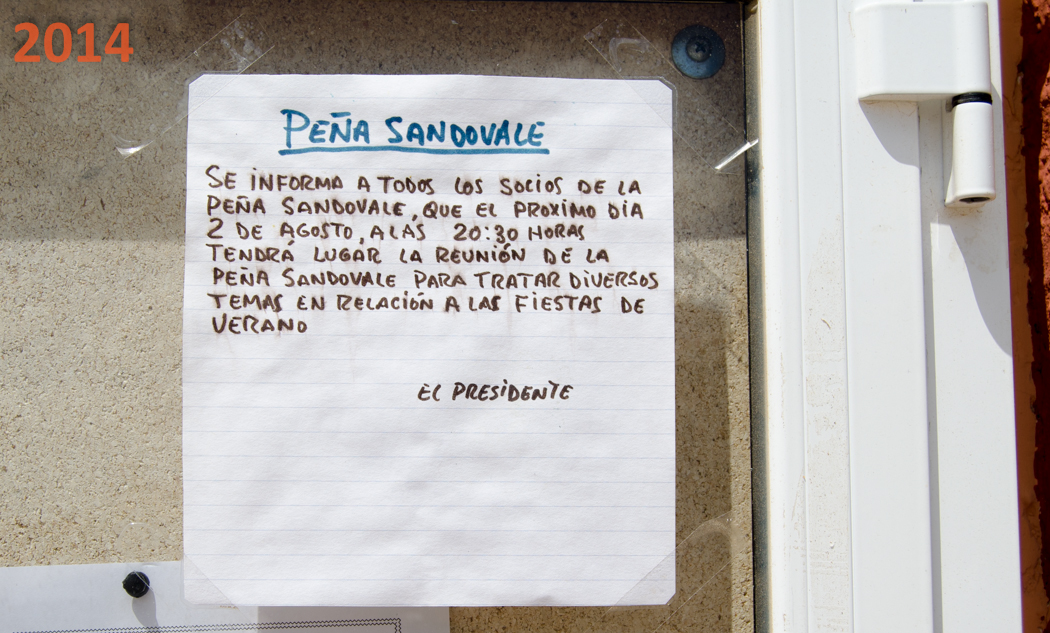 2014
PEÑA SANDOVALE
SE INFORMA A TODOS LOS SOCIOS DE LA
PEÑA SANDOVALE, QUE EL PROXIMO DIA
2 DE AGOSTO, A LAS 20:30 HORAS
TENDRÁ LUGAR LA REUNIÓN DE LA
PEÑA SANDOVALE PARA TRATAR DIVERSOS
TEMAS EN RELACIÓN A LAS FIESTAS DE
VERANO
EL PRESIDENTE